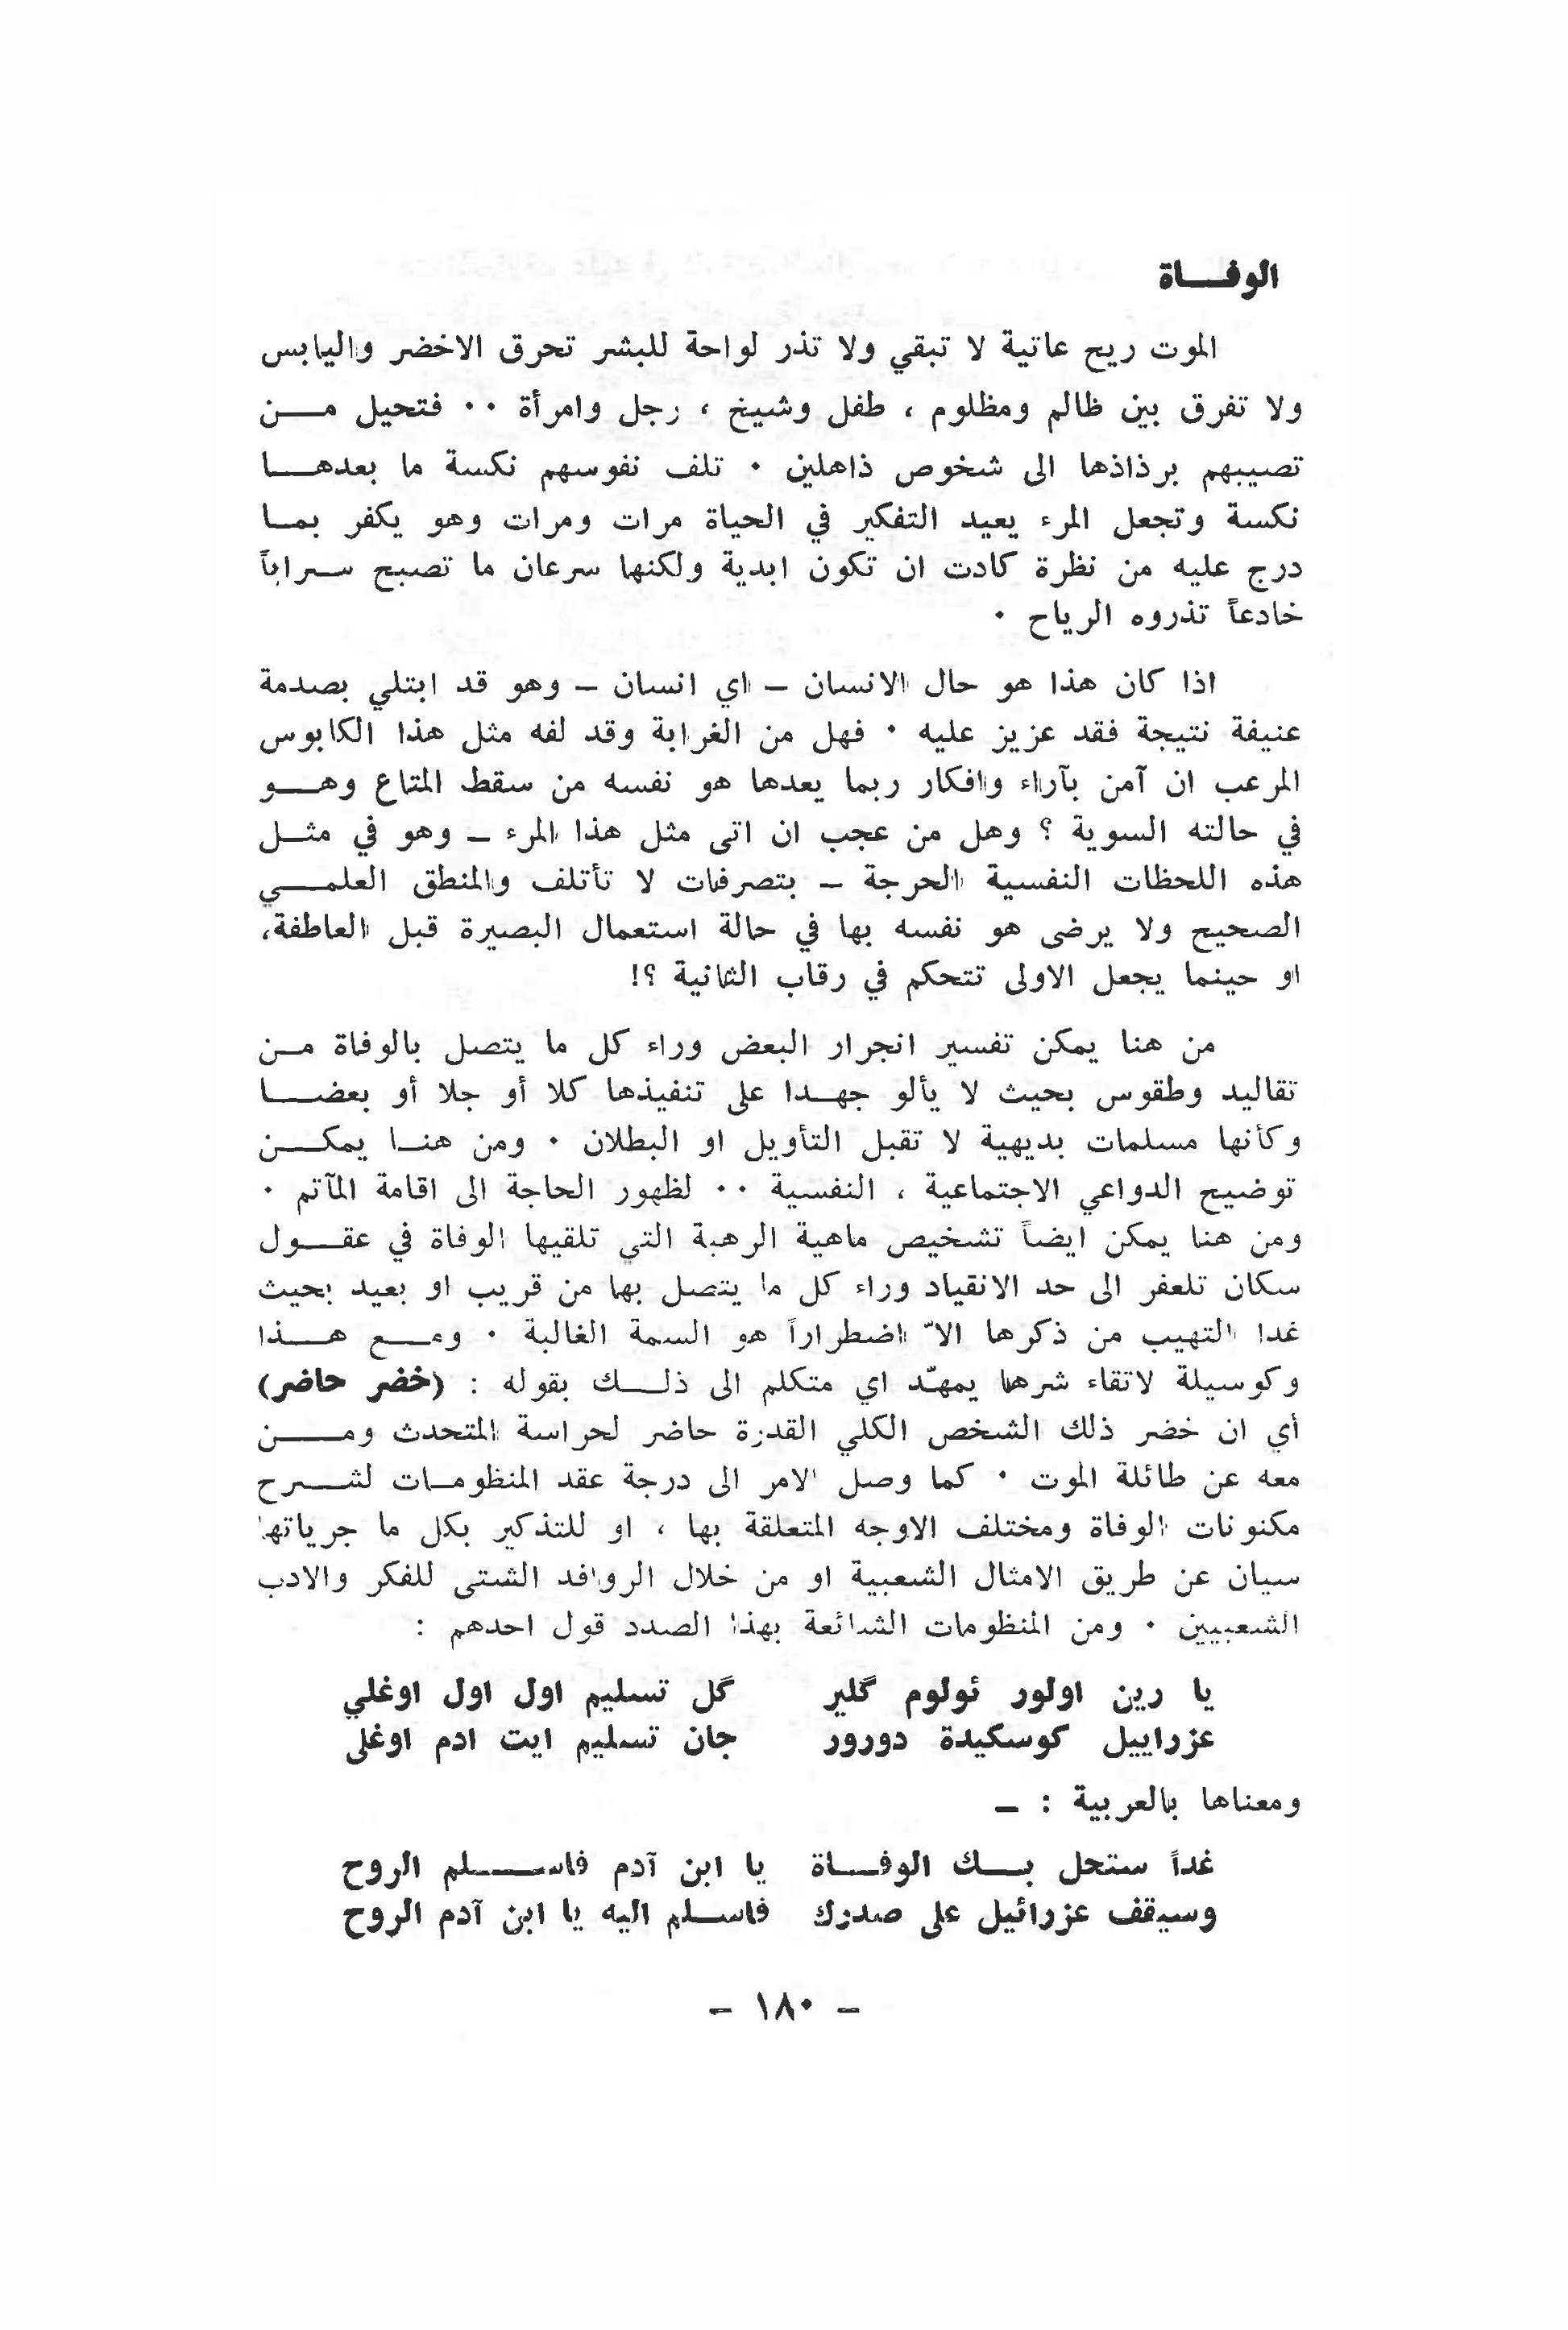 الوفاة
الموت ريح عاتية لا تبقي ولا تذر لواحة للبشر تحرق الاخضر واليابس
ولا تفرق بين ظالم ومظلوم ، طفل وشيخ ، رجل وامرأة ٠٠ فتحيل من
تصيبهم برذاذها الى شخوص ذاهلين ٠ تلف نفوسهم نكسة ما بعدها
نكسة وتجعل المرء يعيد التفكير في الحياة مرات ومرات وهو يكفر بما
درج عليه من نظرة كادت ان تكون ابدية ولكنها سرعان ما تصبح سراباً
خادعاً تذروه الرياح ٠
اذا كان هذا هو حال الانسان – اي انسان – وهو قد ابتلي بصدمة
عنيفة نتيجة فقد عزيز عليه ٠ فهل من الغرابة وقد لفه مثل هذا الكابوس
المرعب ان آمن بآراء وافكار ربما يعدها هو نفسه من سقط المتاع وهو
في حالته السوية ؟ وهل من عجب ان اتى مثل هذا المرء – وهو في مثل
هذه اللحظات النفسية الحرجة – بتصرفات لا تأتلف والمنطق العلمي
الصحيح ولا يرضى هو نفسه بها في حالة استعمال البصيرة قبل العاطفة،
او حينما يجعل الاولى تتحكم في رقاب الثانية ؟!
من هنا يمكن تفسير انجرار البعض وراء كل ما يتصل بالوفاة من
تقاليد وطقوس بحيث لا يألو جهدا على تنفيذها كلا أو جلا أو بعضا
وكأنها مسلمات بديهية لا تقبل التأويل او البطلان ٠ ومن هنا يمكن
توضيح الدواعي الاجتماعية ، النفسية ٠٠ لظهور الحاجة الى اقامة المآتم ٠
ومن هنا يمكن ايضاً تشخيص ماهية الرهبة التي تلقيها الوفاة في عقول
سكان تلعفر الى حد الانقياد وراء كل ما يتصل بها من قريب او بعيد بحيث
غدا التهيب من ذكرها الاّ اضطراراً هو السمة الغالبة ٠ ومع هذا
وكوسيلة لاتقاء شرها يمهّد اي متكلم الى ذلك بقوله : (خضر حاضر)
أي ان خضر ذلك الشخص الكلي القدرة حاضر لحراسة المتحدث ومن
معه عن طائلة الموت ٠ كما وصل الامر الى درجة عقد المنظومات لشرح
مكنونات الوفاة ومختلف الاوجه المتعلقة بها ، او للتذكير بكل ما جرياتها
سيان عن طريق الامثال الشعبية او من خلال الروافد الشتى للفكر والادب
الشعبيين ٠ ومن المنظومات الشائعة بهذا الصدد قول احدهم :
يا رين اولور ئولوم گلير گل تسليم اول اول اوغلي
عزراييل كوسكيدة دورور جان تسليم ايت ادم اوغلى
ومعناها بالعربية : –
غداً ستحل بك الوفاة يا ابن آدم فاسلم الروح
وسيقف عزرائيل على صدرك فاسلم اليه يا ابن آدم الروح
– ١٨٠ –